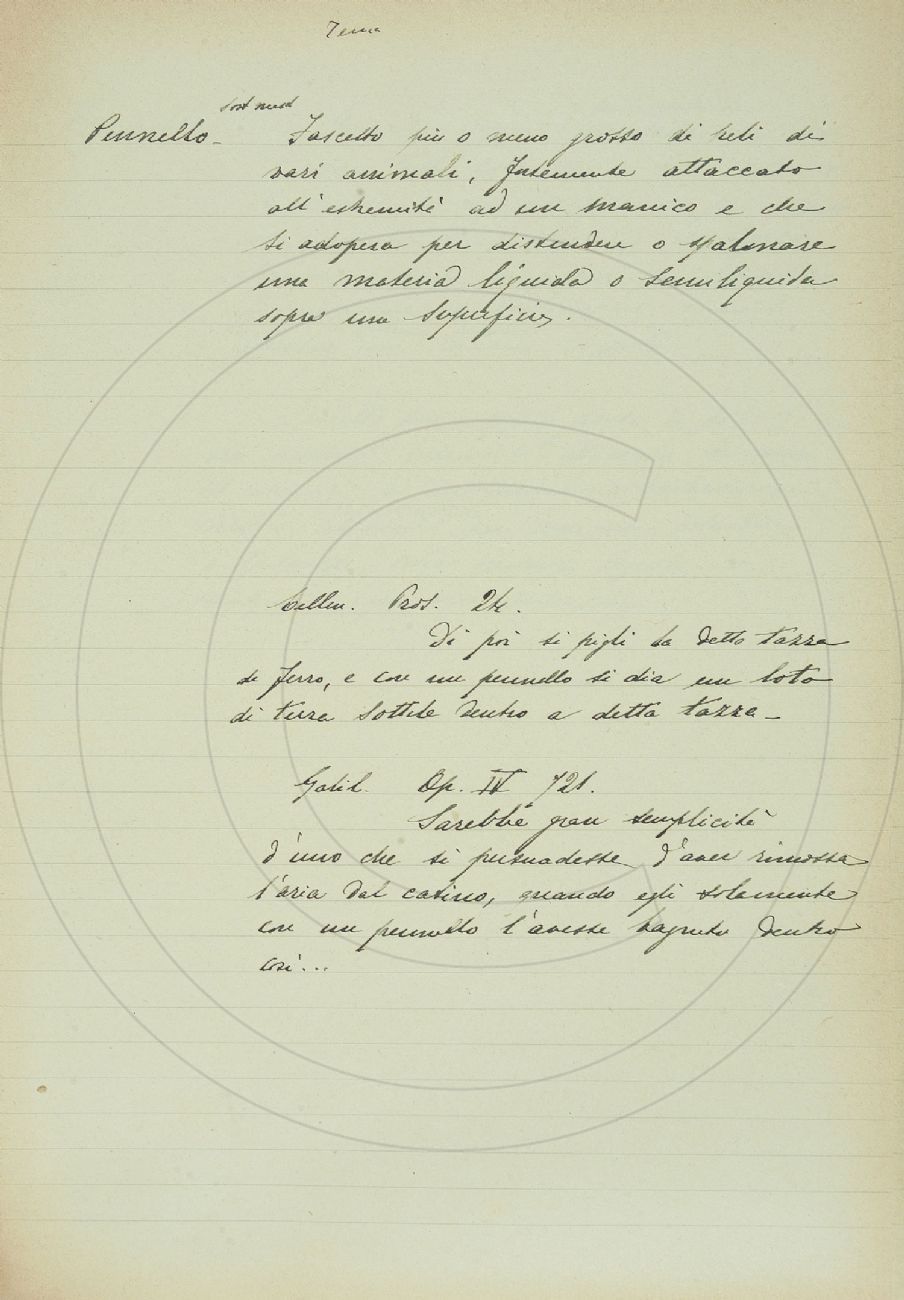 Tema
sost masc
Pennello - Fascetto più o meno grosso di peli di
vari animali, fortemente attaccato
all'estremità ad un manico e che
si adopera per distendere o spalmare
una materia liquida o semiliquida
sopra una superficie.
Cellin. Pros. 24.
Di poi si pigli la detta tazza
di ferro, e con un pennello si dia un loto
di terra sottile dentro a detta tazza -
Galil. Op. IV 721.
Sarebbe gran semplicità
d'uno che si persuadesse d'aver rimossa
l'aria dal catino, quando egli solamente
con un pennello l'avesse bagnato dentro
così...